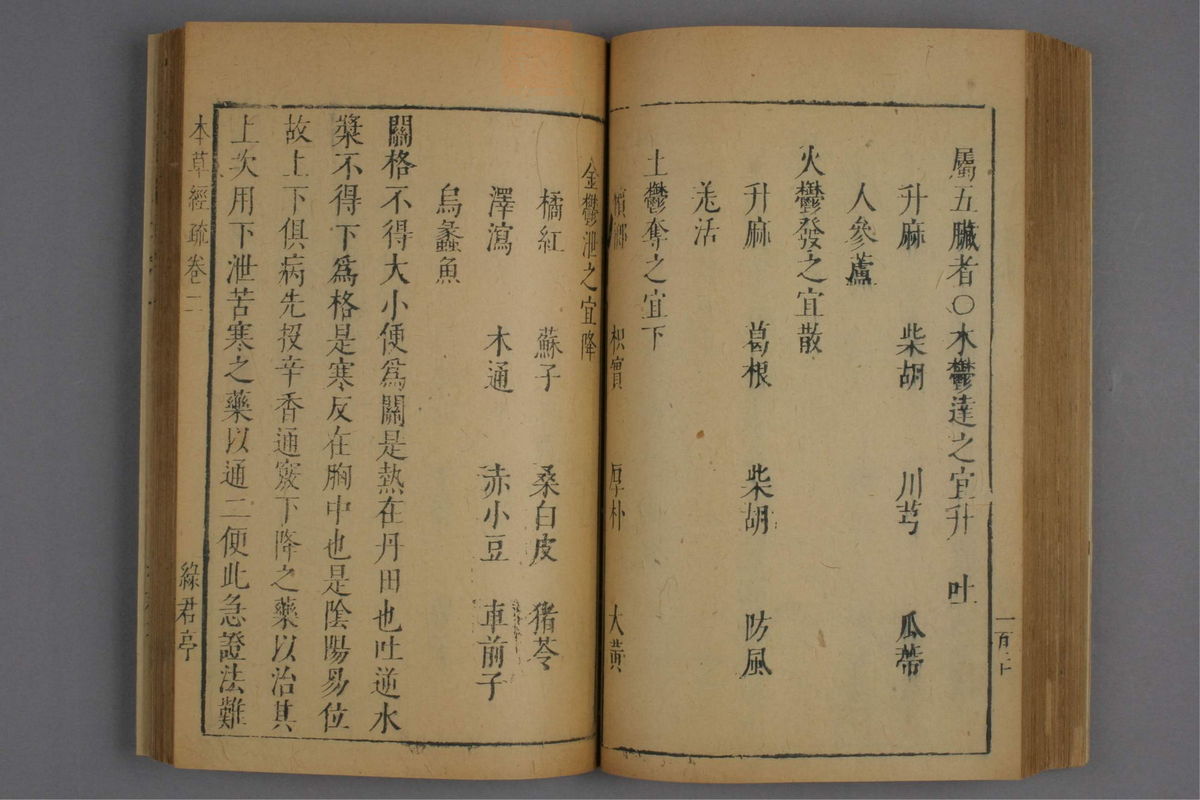 屬五臟者○木鬱達之宜升 吐
升麻 柴胡 川芎 瓜蒂
人參蘆
火鬱發之宜散
升麻 葛根 柴胡 防風
羌活
土鬱奪之宜下
檳榔 枳實 厚朴 大黃
金鬱泄之宜降
橘紅 蘇子 桑白皮 猪苓
澤瀉 木通 赤小豆 車前子
烏蠡魚
關格不得大小便爲關是熱在丹田也吐逆水
漿不得下爲格是寒反在胸中也是陰陽易位
故上下俱病先投辛香通竅下降之藥以治其
上次用下泄苦寒之藥以通二便此急證法難
本草經疏 卷二
綠君亭